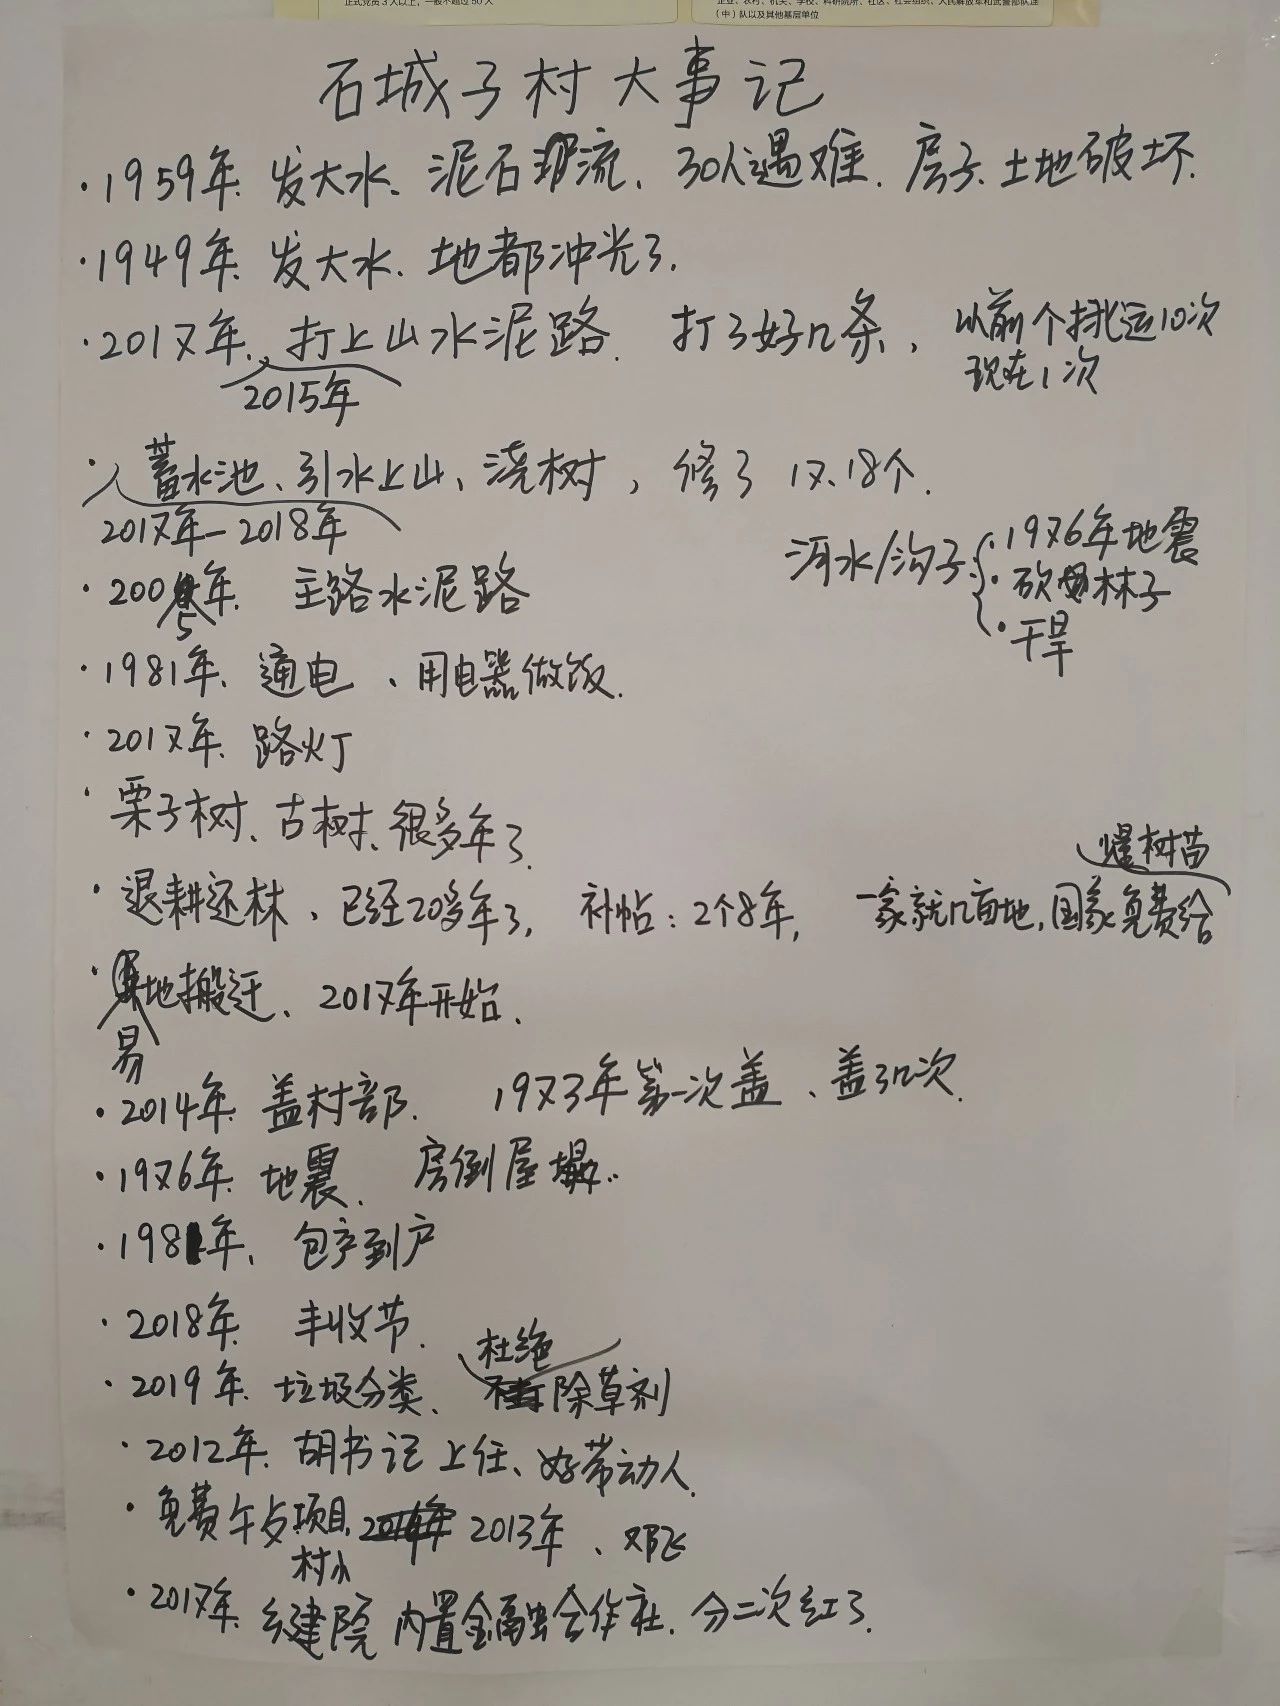 正式党员3人以上，一般不超过50人
企业、农村、机关、学校、科研院所、社区、社会组织、人民解放军和武警部队连
（中）队以及其他基层单位
石城子村大事记
·1959年、发大水、泥石流、30人遇难、房子、土地破坏、
·1949年、发大水、地都冲光了、
·2017年、打上山水泥路、打了好几条，以前个挑运10次
现在1次
2015年
·蓄水池、引水上山、浇树，修了17、18个、
2017年-2018年
河水/沟子 ·1976年地震
·砍林子
·干旱
·2005年、主路水泥路
·1981年、通电、用电器做饭、
·2017年、路灯
·栗子树、古树、很多年了、
树苗
·退耕还林、已经20多年了，补帖：2个8年，一家就几亩地，国家免费给
·易地搬迁、2017年开始、
·2014年、盖村部、1973年第一次盖、盖了几次、
·1976年、地震、房倒屋塌..
·1981年、包产到户
·2018年、丰收节、
杜绝
·2019年、垃圾分类、除草剂
·2012年、胡书记上任、好带动人、
·免费午餐项目、2013年、邓飞
村小
·2017年、乡建院内置金融合作社、分二次红了、